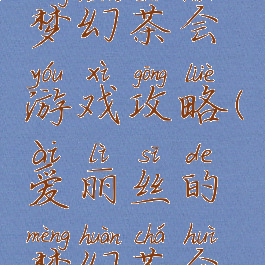 梦幻茶会
yóu xì gōng lüè
游戏攻略(
ài lì sī de
爱丽丝的
mèng huàn chá huì
梦幻茶会